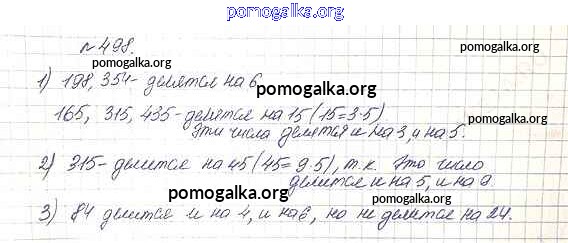 pomogalka.org
№498.
pomogalka.org
pomogalka.org
1) 198, 354 - делятся на 6
pomogalka.org
165, 315, 435 - делятся на 15 (15=3·5)
Эти числа делятся и на 3, и на 5.
pomogalka.org
2) 315 - делится на 45 (45=9·5), т.к. это число
делится и на 5, и на 9.
pomogalka.org
pomogalka.org
3) 84 делится и на 4, и на 6, но не делится на 24.
pomogalka.org